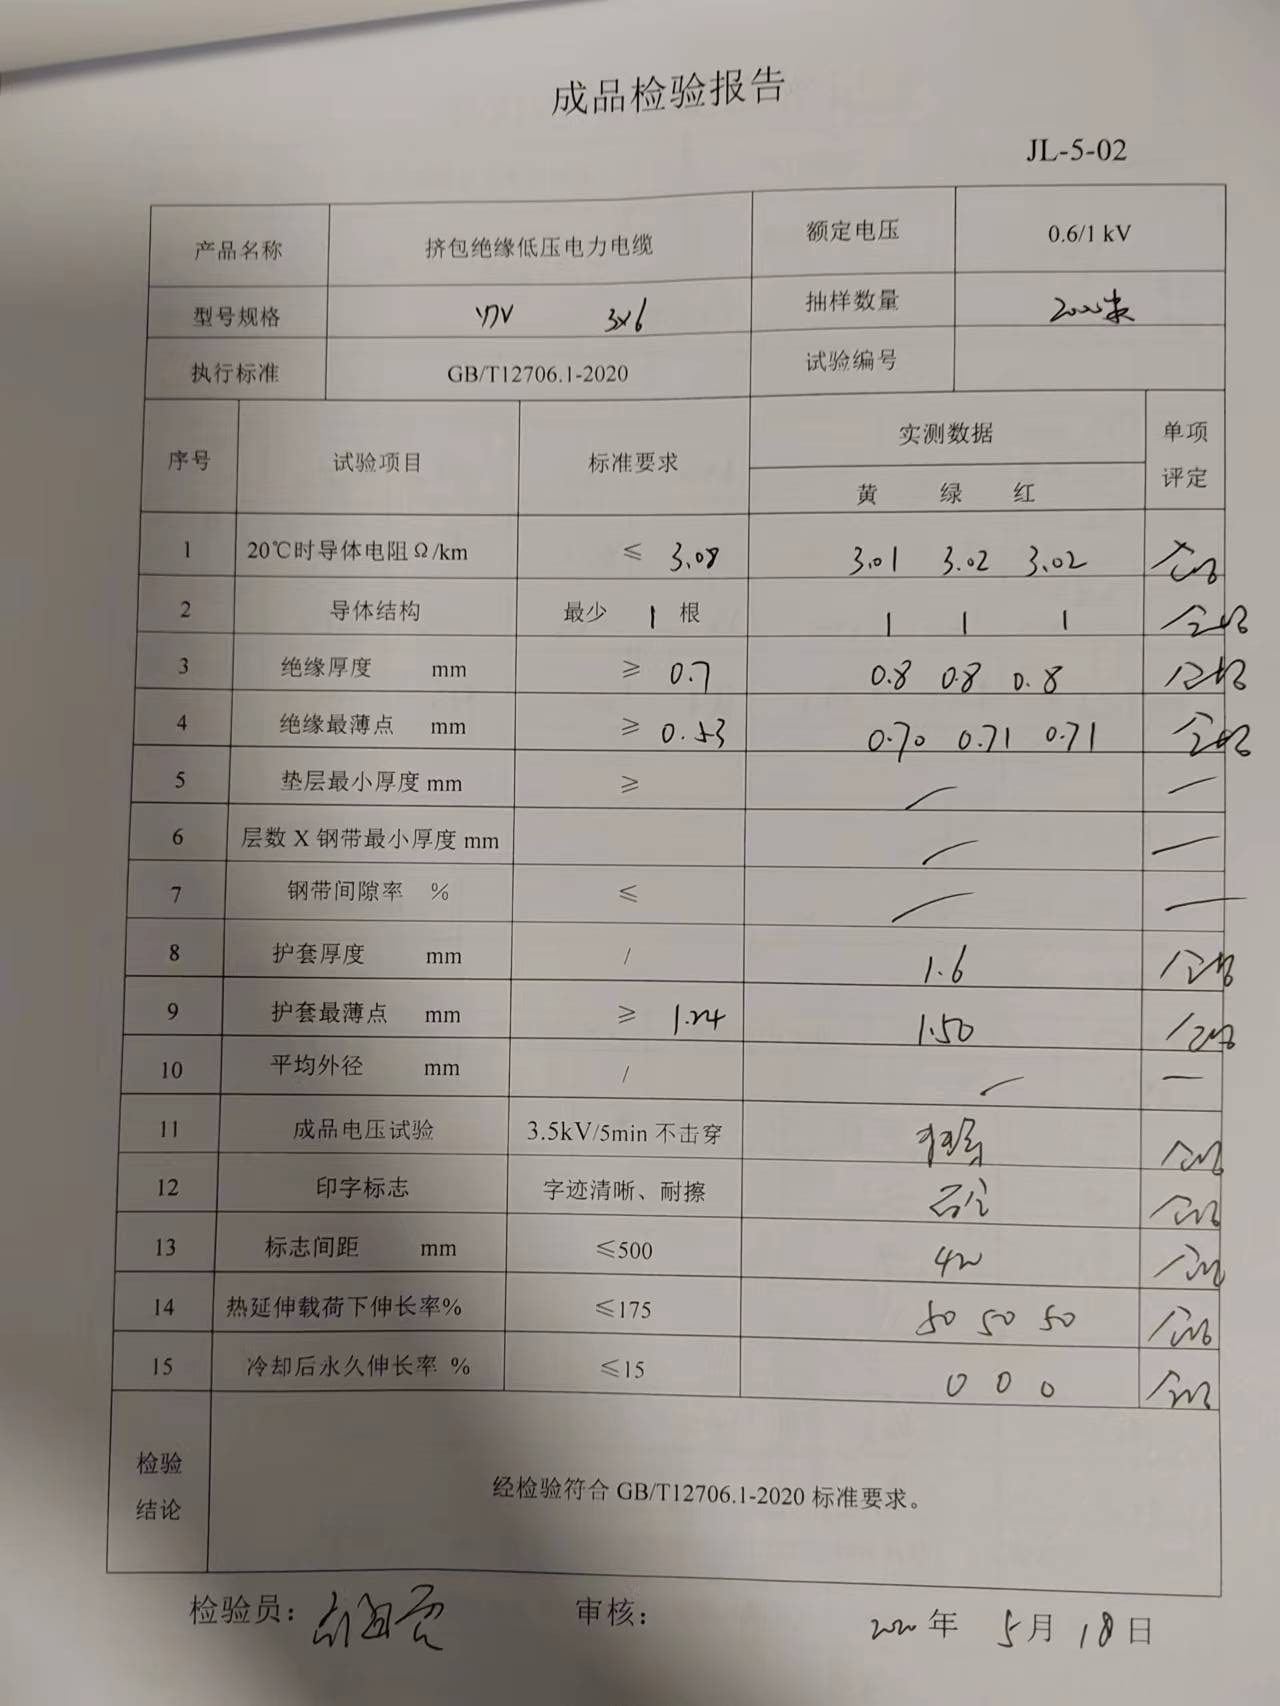 成品检验报告
JL-5-02
产品名称 挤包绝缘低压电力电缆 额定电压 0.6/1 kV
型号规格 3×6 抽样数量 2000米
执行标准 GB/T12706.1-2020 试验编号
序号 试验项目 标准要求 实测数据 单项评定
黄 绿 红
1 20℃时导体电阻Ω/km ≤ 3.08 3.01 3.02 3.02 合格
2 导体结构 最少 1 根 1 1 1 合格
3 绝缘厚度 mm ≥ 0.7 0.8 0.8 0.8 合格
4 绝缘最薄点 mm ≥ 0.53 0.70 0.71 0.71 合格
5 垫层最小厚度mm ≥ / —
6 层数X钢带最小厚度mm / —
7 钢带间隙率 % ≤ / —
8 护套厚度 mm / 1.6 合格
9 护套最薄点 mm ≥ 1.24 1.50 合格
10 平均外径 mm / / —
11 成品电压试验 3.5kV/5min不击穿 合格
12 印字标志 字迹清晰、耐擦 合格
13 标志间距 mm ≤500 合格
14 热延伸载荷下伸长率% ≤175 50 50 50 合格
15 冷却后永久伸长率 % ≤15 0 0 0 合格
检验结论 经检验符合GB/T12706.1-2020标准要求。
检验员: 审核: 2020年 5月18日